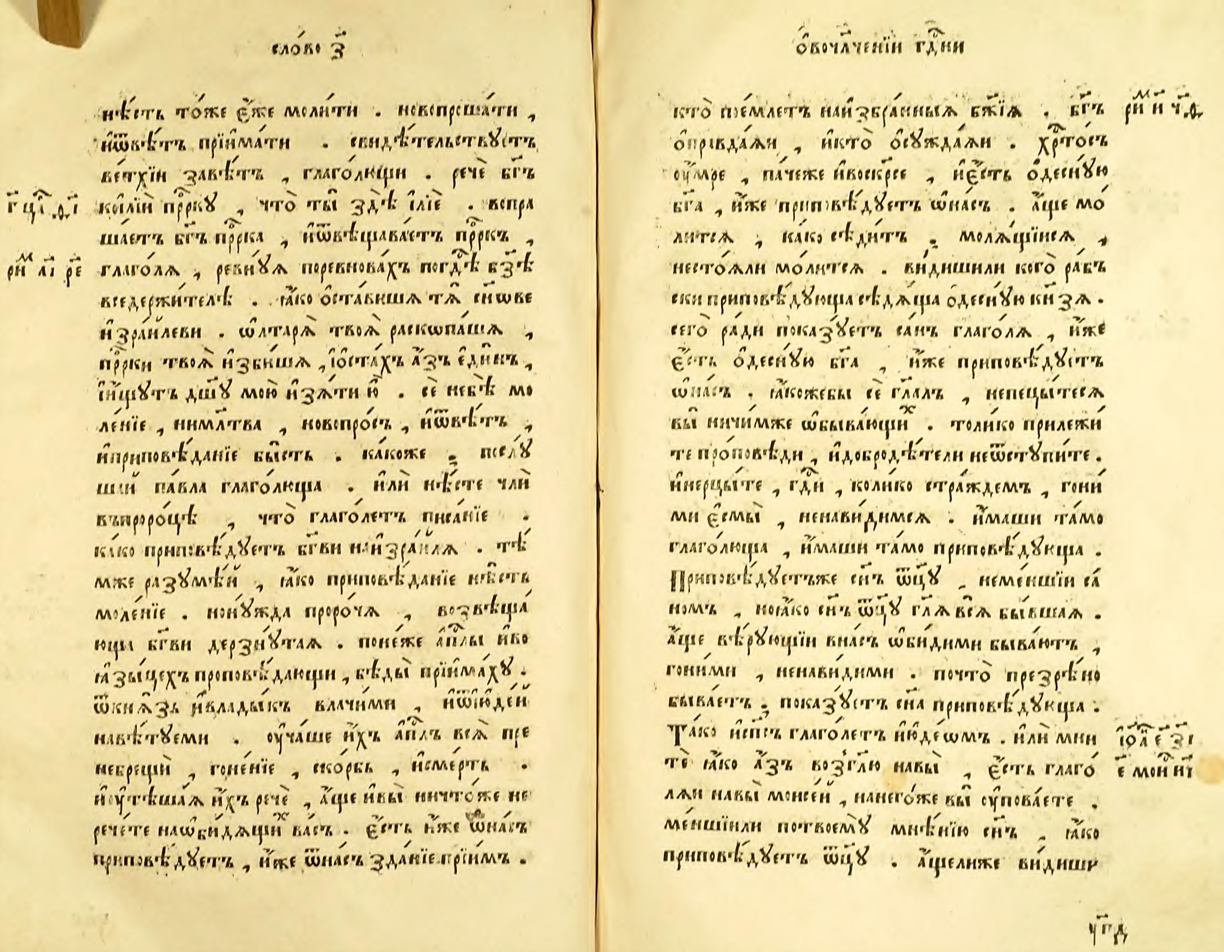 сло́во з҃
нѣ́сть то́же є҆́же моли́ти . новопроша́ти ,
и҆ѿвѣ́тъ прїима́ти . свидѣ́тельствꙋетъ
ве́тхїи завѣ́тъ , глаго́лющи . речѐ бг҃ъ
коилїѝ прⷪ҇ркꙋ , что̀ ты̀ здѣ̀ илїѐ . вопра
ша́етъ бг҃ъ прⷪ҇рка , и҆ѿвѣщава́етъ прⷪ҇ркъ ,
г҃ цр҃ . ѳ҃і
глаго́лѧ , ревнꙋ́ѧ поревнова́хъ погдⷭ҇ѣ бз҃ѣ
риⷨ а҃і ре
вседержи́телѣ . ꙗ҆́ко ѡ҆ста́вишѧ тѧ̀ сн҃ове
и҆зра́илеви . ѡ҆лтарѧ̀ твоѧ̀ раскопа́шѧ ,
прⷪ҇рки твоѧ̀ и҆зби́шѧ , і҆ѡ҆ста́хъ а҆́зъ є҆ди́нъ ,
і҆и́щꙋтъ дш҃ꙋ мою̀ и҆зѧ́ти ю҆̀ . сѐ небѣ̀ мо
ле́нїе , нимл҃тва , новопро́съ , и҆ѿвѣ́тъ ,
и҆приповѣ́данїе бы́сть . ка́коже , послꙋ́
шай па́вла глаго́люща . и҆лѝ нѣ́сте члѝ
въпроро́цѣ , что̀ глаго́летъ писа́нїе .
ка́ко приповѣ́дꙋетъ бг҃ви наи҆зра́илѧ . тѣ́
мже разꙋмѣ́й , ꙗ҆́ко приповѣ́данїе нѣ́сть
моле́нїе . нонꙋ́жда проро́чѧ , возвѣща́
ющи бг҃ви дерзнꙋ́таѧ . поне́же а҆пⷭ҇лы и҆во
ꙗ҆зы́цехъ проповѣ́дающи , бѣды̀ прїима́хꙋ .
ѿкнѧ́зь и҆влады́къ влачи́ми , и҆ѿїюде́й
навѣ́тꙋеми . ѹ҆ча́ше и҆́хъ а҆пⷭ҇лъ всѧ̀ пре
небрещѝ , гоне́нїе , ско́рбь , и҆сме́рть .
и҆ѹ҆тѣша́ѧ и҆́хъ речѐ , а҆́ще и҆вы̀ ничто́же не
рече́те наѡ҆би́дѧщиⷯ ва́съ . є҆́сть и҆́же ѡ҆на́съ
приповѣ́дꙋетъ , и҆́же ѿна́съ зда́нїе прїи́мъ .
ѡ҆вочл҃ченїи гдⷭ҇ни
кто̀ пое́млетъ наи҆збра́нныѧ бж҃їѧ . бг҃ъ
риⷨ и҃ ч . д҃
ѡ҆правда́ѧи , и҆кто̀ ѡ҆сꙋжда́ѧи . хрⷭ҇то́съ
ѹ҆́мре , па́чеже и҆воскр҃се , и҆є҆́сть ѡ҆деснꙋ́ю
бг҃а , и҆́же приповѣ́дꙋетъ ѡ҆на́съ . а҆́ще мо́
литсѧ , ка́ко сѣди́тъ , молѧ́щїисѧ ,
нестоѧли мо́литсѧ . ви́дишили кого̀ ра́бъ
ски приповѣ́дꙋюща сѣдѧ́ща ѡ҆деснꙋ́ю кнѧ́зѧ .
сего̀ ра́ди показꙋ́етъ са́нъ глаго́лѧ , и҆́же
є҆́сть ѡ҆деснꙋ́ю бг҃а , и҆́же приповѣ́дꙋетъ
ѡ҆на́съ . ꙗ҆́кожебы сѐ гл҃алъ , непецы́тесѧ
вы̀ ничи́мже ѡ҆быва́ющиⷯ . толи́ко прилежи́
те про́поведи , и҆добродѣ́тели неѿстꙋпи́те .
и҆нерцы́те , гдⷭ҇и , коли́ко стра́ждемъ , гони́
ми є҆смы̀ , ненави́димсѧ . и҆́маши та́мо
глаго́люща , и҆́маши та́мо приповѣ́дꙋюща .
Приповѣ́дꙋетъже сн҃ъ ѿц҃ꙋ . неме́ншїи са́
номъ , ноꙗ҆́ко сн҃ъ ѿц҃ꙋ гл҃ѧ всѧ̀ бы́вшаѧ .
а҆́ще вѣ́рꙋющїи вна́съ ѡ҆би́дими быва́ютъ ,
гони́ми , ненави́дими . почто̀ презрѣ́но
быва́етъ , показꙋ́етъ сн҃а приповѣ́дꙋюща .
Та́ко и҆сп҃съ глаго́летъ и҆юде́ѡмъ . и҆лѝ мни
і҆ѡⷩ҇ е҃ з҃і
те ꙗ҆́ко а҆́зъ возгл҃ю навы̀ , є҆́сть глаго́
є҃ мои҆ н҃і
лѧи навы̀ моисе́й , нанего́же вы̀ ѹ҆пова́ете .
ме́ншїили потвоемꙋ̀ мнѣ́нїю сн҃ъ , ꙗ҆́ко
приповѣ́дꙋетъ ѿц҃ꙋ . а҆́щелиже ви́диши
ч҃пд